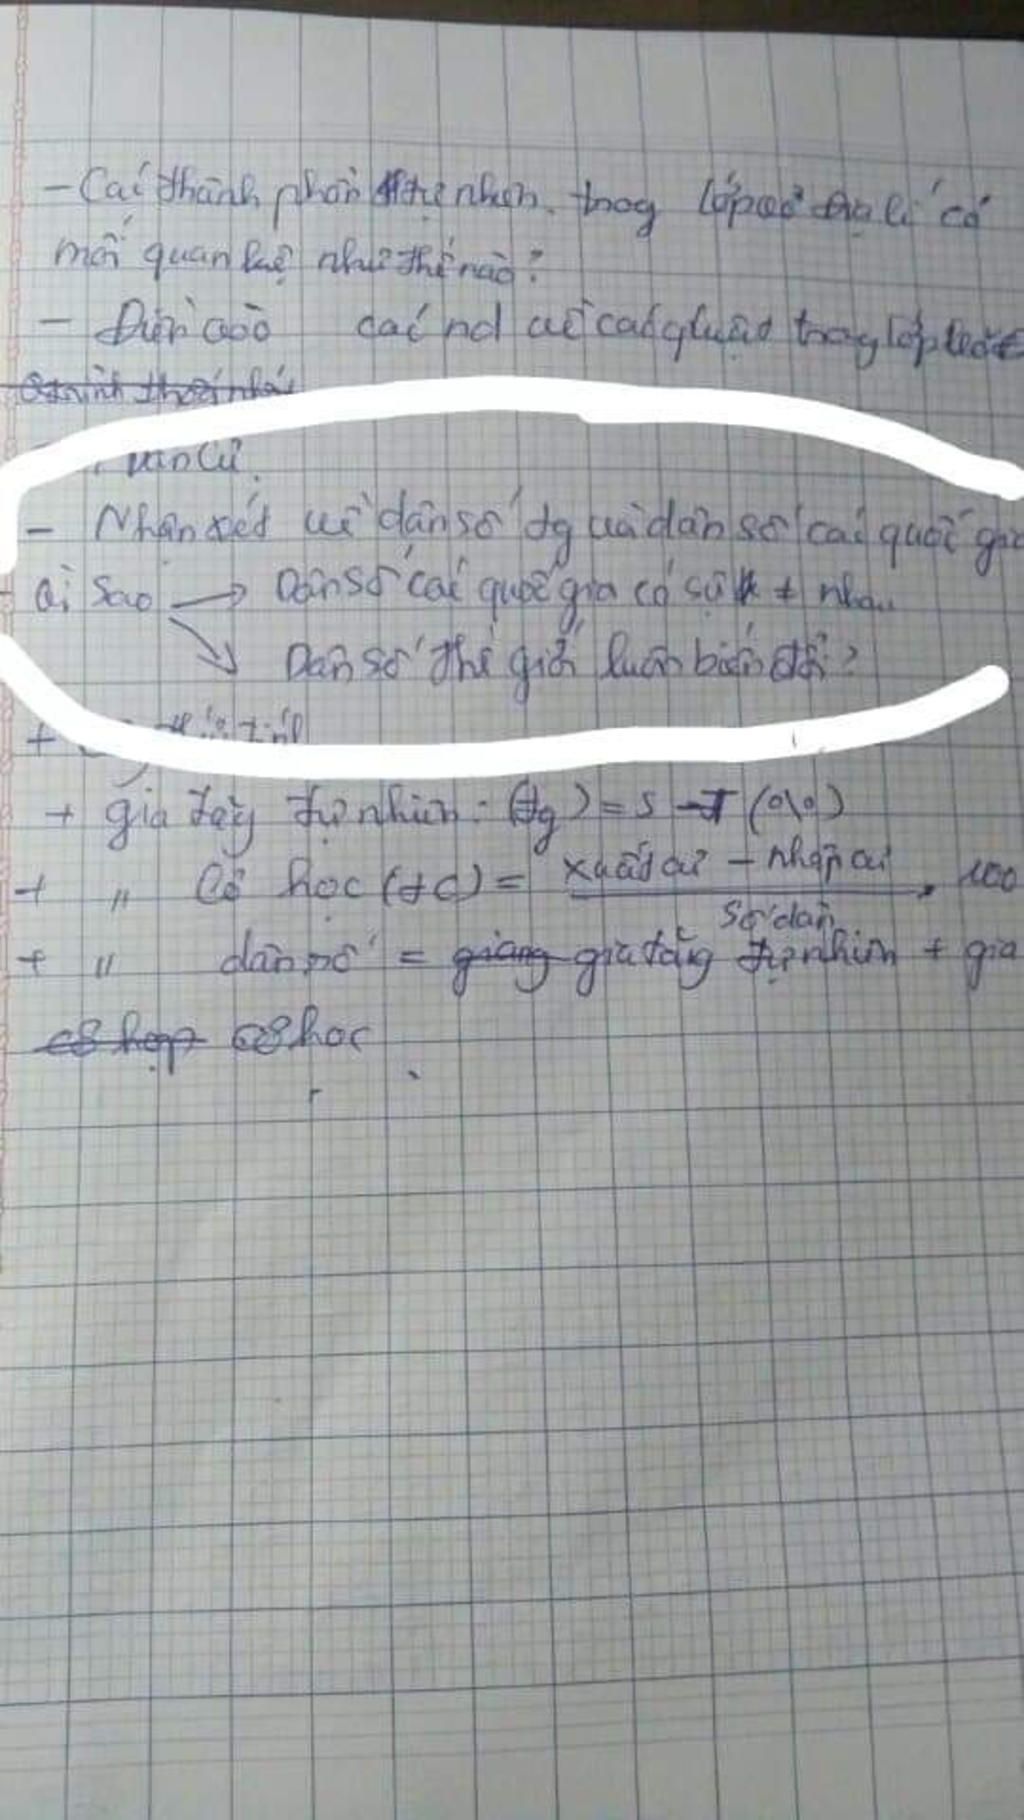 - Các thành phần tự nhiên trog lớp vỏ địa lí có
mối quan hệ như thế nào?
- Điền vào các nd về các qluật trog lớp
- Nhận xét về dân số tg và dân số các quốc gia
ại sao → Dân số các quốc gia có sự ≠ nhau
↘ Dân số thế giới luôn biến đổi?
+ gia tăg tự nhiên: (tg) = S - T (%)
+ " Cơ học (tc) = xuất cư - nhập cư / số dân . 100
+ " dân số = giang gia tăg tự nhiên + gia
cơ họp cơ học